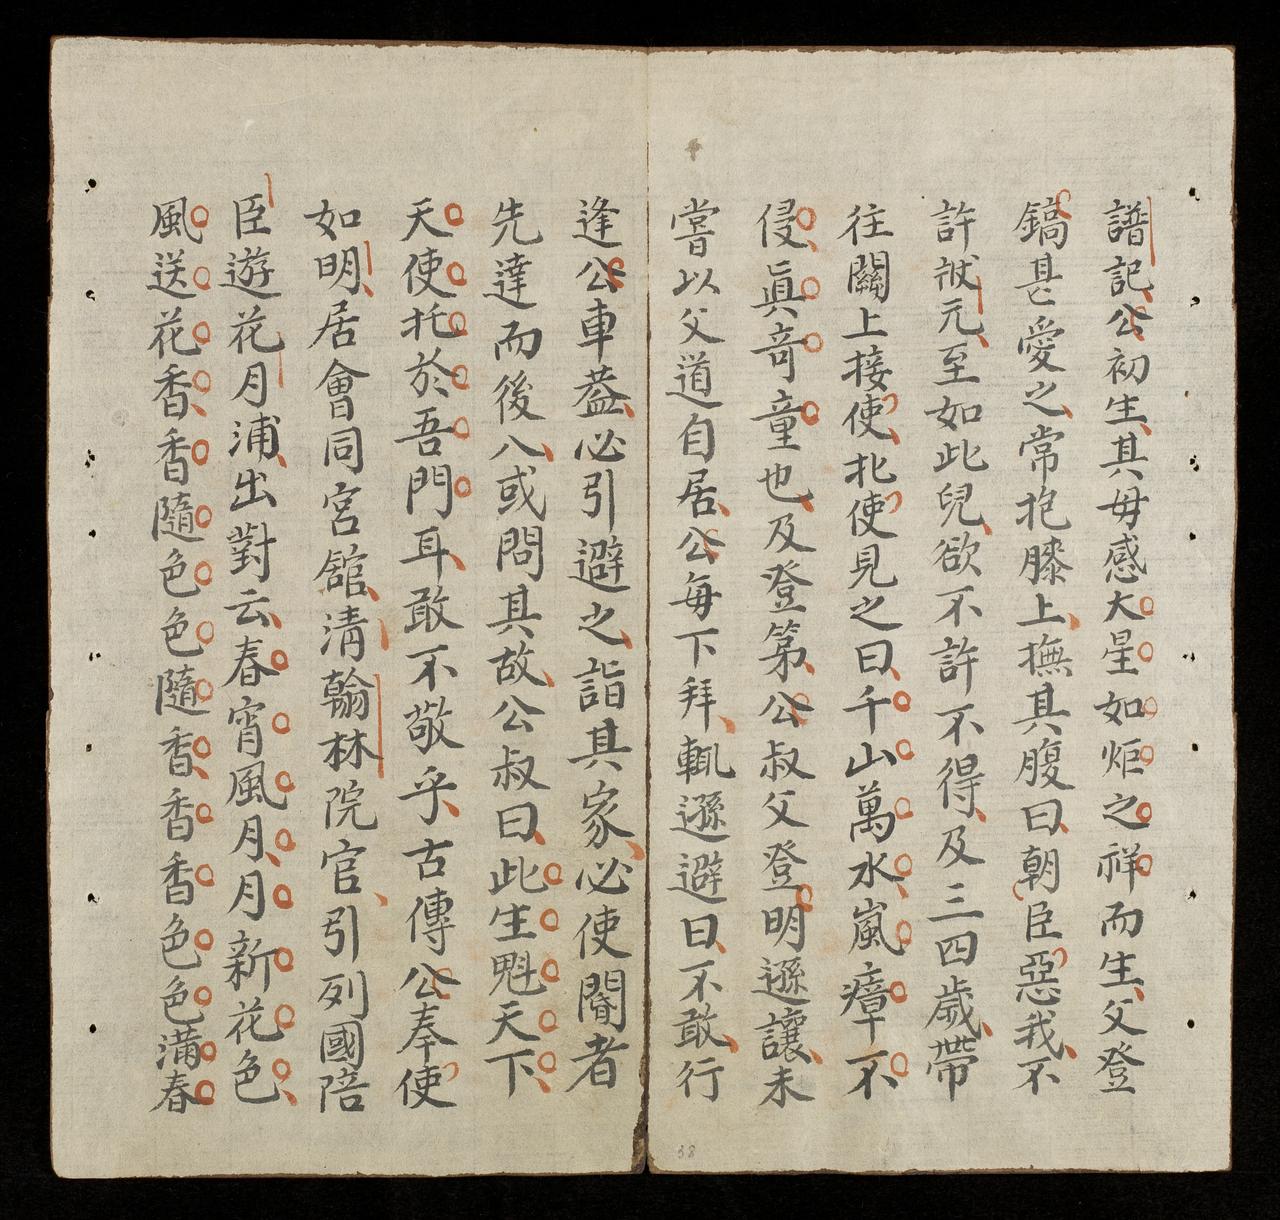 譜記公初生其母感大星如炬之祥而生父登
鎬甚愛之常抱膝上撫其腹曰朝臣惡我不
許祓元至如此兒欲不許不得及三四歲帶
往關上接使北使見之曰千山萬水嵐瘴不
侵真奇童也及登第公叔父登明遜讓未
嘗以父道自居公每下拜輒遜避曰不敢行
逢公車蓋必引避之詣其家必使閽者
先達而後入或問其故公叔曰此生魁天下
天使托於吾門耳敢不敬乎古傳公奉使
如明居會同宮舘清翰林院官引列國陪
臣遊花月浦出對云春宵風月月新花色
風送花香香隨色色隨香香香色色滿春
38